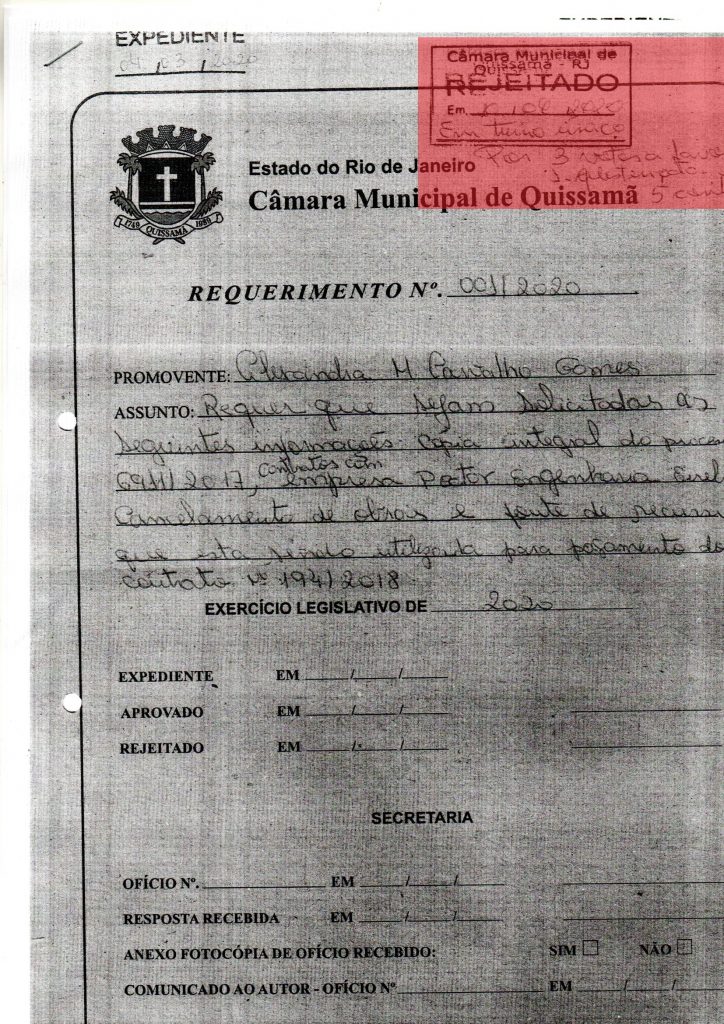 EXPEDIENTE
04 / 03 / 2020
Câmara Municipal de
Quissamã - RJ
REJEITADO
Em 2020
Em turno único
Por 3 votos a favo
5 cont
Estado do Rio de Janeiro
Câmara Municipal de Quissamã
1749 QUISSAMÃ 1989
REQUERIMENTO Nº. 001/2020
PROMOVENTE: Alexandra M Carvalho Gomes
ASSUNTO: Requer que sejam solicitadas as
seguintes informações: Cópia integral do proces
6911/2017, contratos com empresa Doctor Engenharia Eirel
Cancelamento de obras e fonte de recurs
que esta sendo utilizada para pagamento do
contrato nº 194/2018
EXERCÍCIO LEGISLATIVO DE 2020
EXPEDIENTE EM / /
APROVADO EM / /
REJEITADO EM / /
SECRETARIA
OFÍCIO Nº. EM / /
RESPOSTA RECEBIDA EM / /
ANEXO FOTOCÓPIA DE OFÍCIO RECEBIDO: SIM NÃO
COMUNICADO AO AUTOR - OFÍCIO Nº EM / /